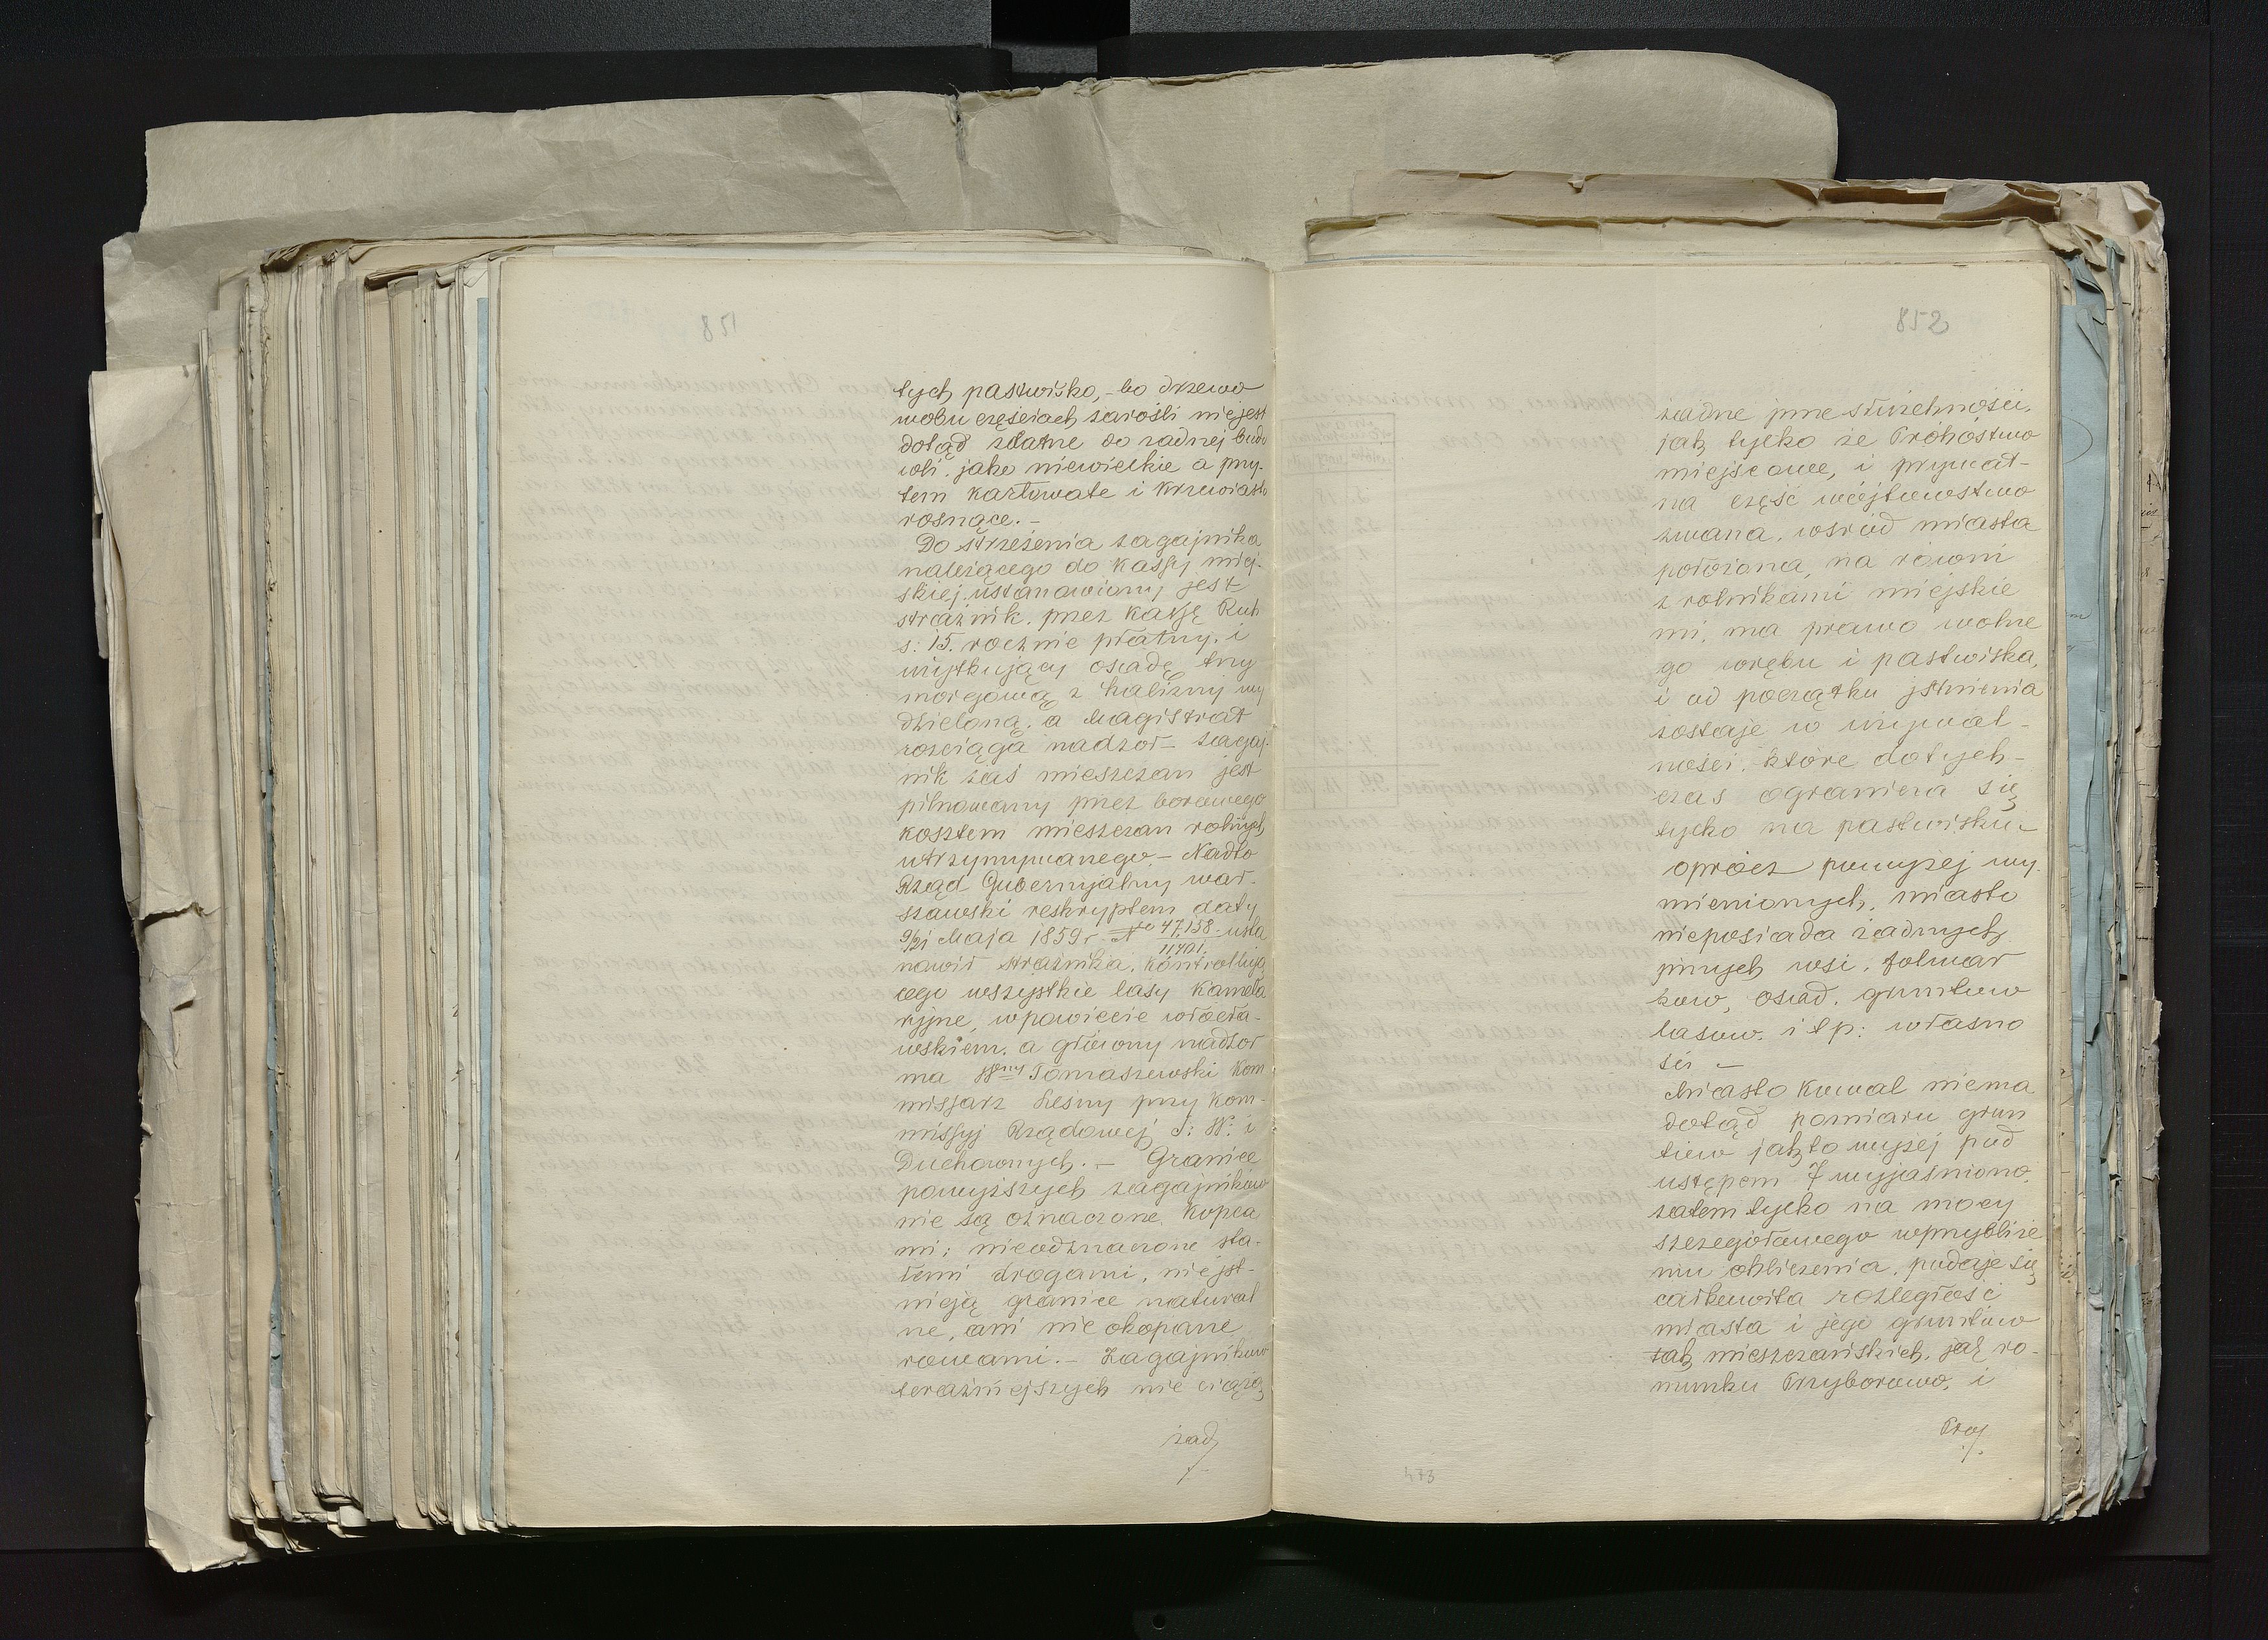 851
tych pastwisko, - bo drzewo
wobu częściach zarośli niejest
dotąd zdatne do żadnej budo
wli. jako niewielkie a przy-
tem karłowate i krzewiasto
rosnące. -
Do strzeżenia zagajnika
należącego do kassy miej-
skiej ustanowiony jest
strażnik. przez kassę Rub
s: 15. rocznie płatny. i
użytkujący osadę trzy
morgową z halizny wy
dzieloną. a Magistrat
rosciąga nadzor - zagaj-
nik zaś mieszczan jest
pilnowany przez borowego
kosztem mieszczan rolnych
utrzymywanego. - Nadto
Rząd Gubernjalny war-
szawski reskryptem daty
9/21 Maja 1859 r. No 47,158/11,401. usta
nowił strażnika. kontrollują
cego wszystkie lasy kamela
ryjne, wpowiecie włocła-
wskiem. a główny nadzor
ma Wny Tomaszewski Kom
missarz Leśny przy Kom-
missyj Rządowej S: W: i
Duchownych. - Granice
powyższych zagajników
nie są oznaczone kopca
mi; nieodznaczone sta-
łemi drogami, niejst-
nieją granice natural
ne, ani nie okopane
rowami. - Zagajników
teraźniejszych nie ciążą
żad
852
żadne jnne służebności.
jak tylko że Probóstwo
miejscowe, i prywat-
na część wójtowstwo
zwana. wsród miasta
położona, na równi
z rolnikami miejskie
mi. ma prawo wolne
go wrębu i pastwiska,
i od początku jstnienia
zostaje w używal-
ności. które dotych-
czas ogranicza się
tylko na pastwisku -
oprócz powyżej wy
mienionych, miasto
nieposiada żadnych
jnnych wsi. folwar
kow, osad. gruntow
lasow. i t p: własno
ści -
Miasto Kowal niema
dotąd pomiaru grun
tów jak to wyżej pod
ustępem 7 wyjaśniono.
zatem tylko na mocy
szczegółowego wprzybliże
niu obliczenia. podaje się
całkowita rozległość
miasta i jego gruntow
tak mieszczańskich. jak ro-
munku Przyborowo. i
Prz
473